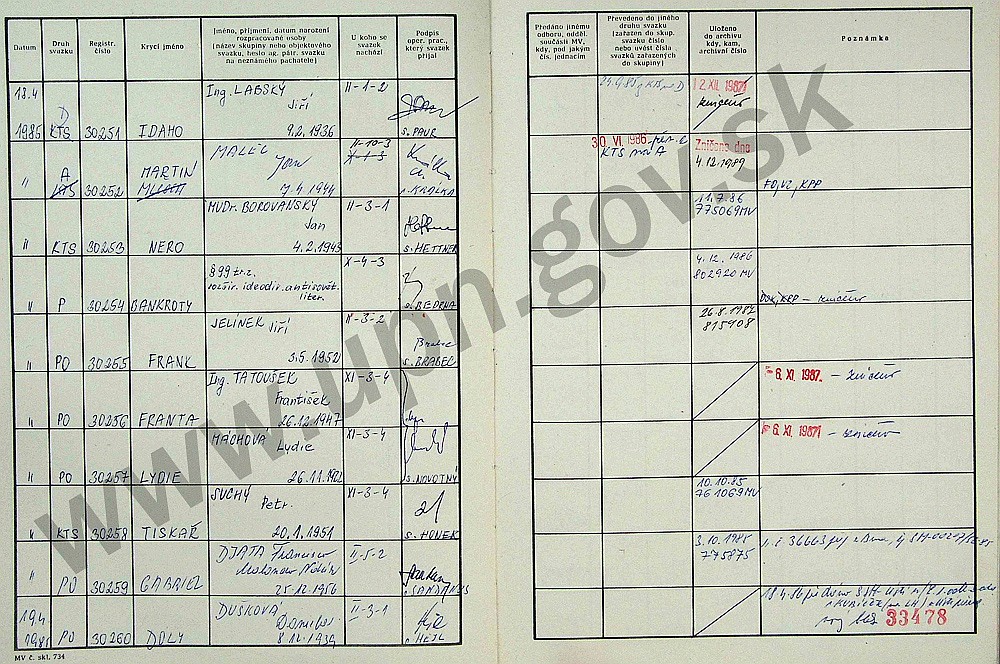 Datum
Druh svazku
Registr. číslo
Krycí jméno
Jméno, příjmení, datum narození
rozpracované osoby
(název skupiny nebo objektového
svazku, heslo ag. pátr. svazku
na neznámého pachatele)
U koho se
svazek
nachází
Podpis
oper. prac.,
který svazek
přijal
Předáno jinému
odboru, odděl.
součásti MV,
kdy, pod jakým
čís. jednacím
Převedeno do jiného
druhu svazku
(zařazen do skup.
svazku číslo
nebo uvést čísla
svazků zařazených
do skupiny)
Uloženo
do archivu
kdy, kam,
archivní číslo
Poznámka
18.4 Ing. LABSKÝ II-1-2
D Jiří
1985 KTS 30251 IDAHO 9.2.1936 s. PAUR
24.9.85 KTS D 12. XII. 1987
zničeno
A MARTIN MALEC II-10-3
X-1-3
" KTS 30252 Jan 7.4.1944 s. KRALKA
30. VI. 1986
KTS na A
Zničeno dne
4.12.1989
MUDr. BOROVANSKÝ II-3-1
Jan
" KTS 30253 NERO 4.2.1943 s. HETTNER
11.7.86
775069 MV
§ 99 tr.z. X-4-3
rozšir. ideodiv. antisovět.
liter.
" P 30254 BANKROTY BEDRNA
4.12.1986
802920 MV
JELÍNEK Jiří II-3-2
" PO 30255 FRANK 3.5.1952 s. BRABEC
26.8.1987
815908
KPP – zničeno
Ing. TATOUŠEK XI-3-4
František
" PO 30256 FRANTA 26.12.1947
- 6. XI. 1987 – zničeno
MÁCHOVÁ XI-3-4
Lydie
" PO 30257 LYDIE 26.11. s. NOVOTNÝ
- 6. XI. 1987 – zničeno
SUCHÝ XI-3-4
Petr.
" KTS 30258 TISKAŘ 20.1.1951 s. HONEK
10.10.85
761069 MV
DJATA Francisco II-5-2
" PO 30259 GABRIEL 25.12.1956
3.10.1985
775875
19.4 DUSKOVÁ II-3-1
1985 PO 30260 DOLY 8.12.1939 s. HEJL
18.4.86
33478
MV č. skl. 734
www.upn.gov.sk